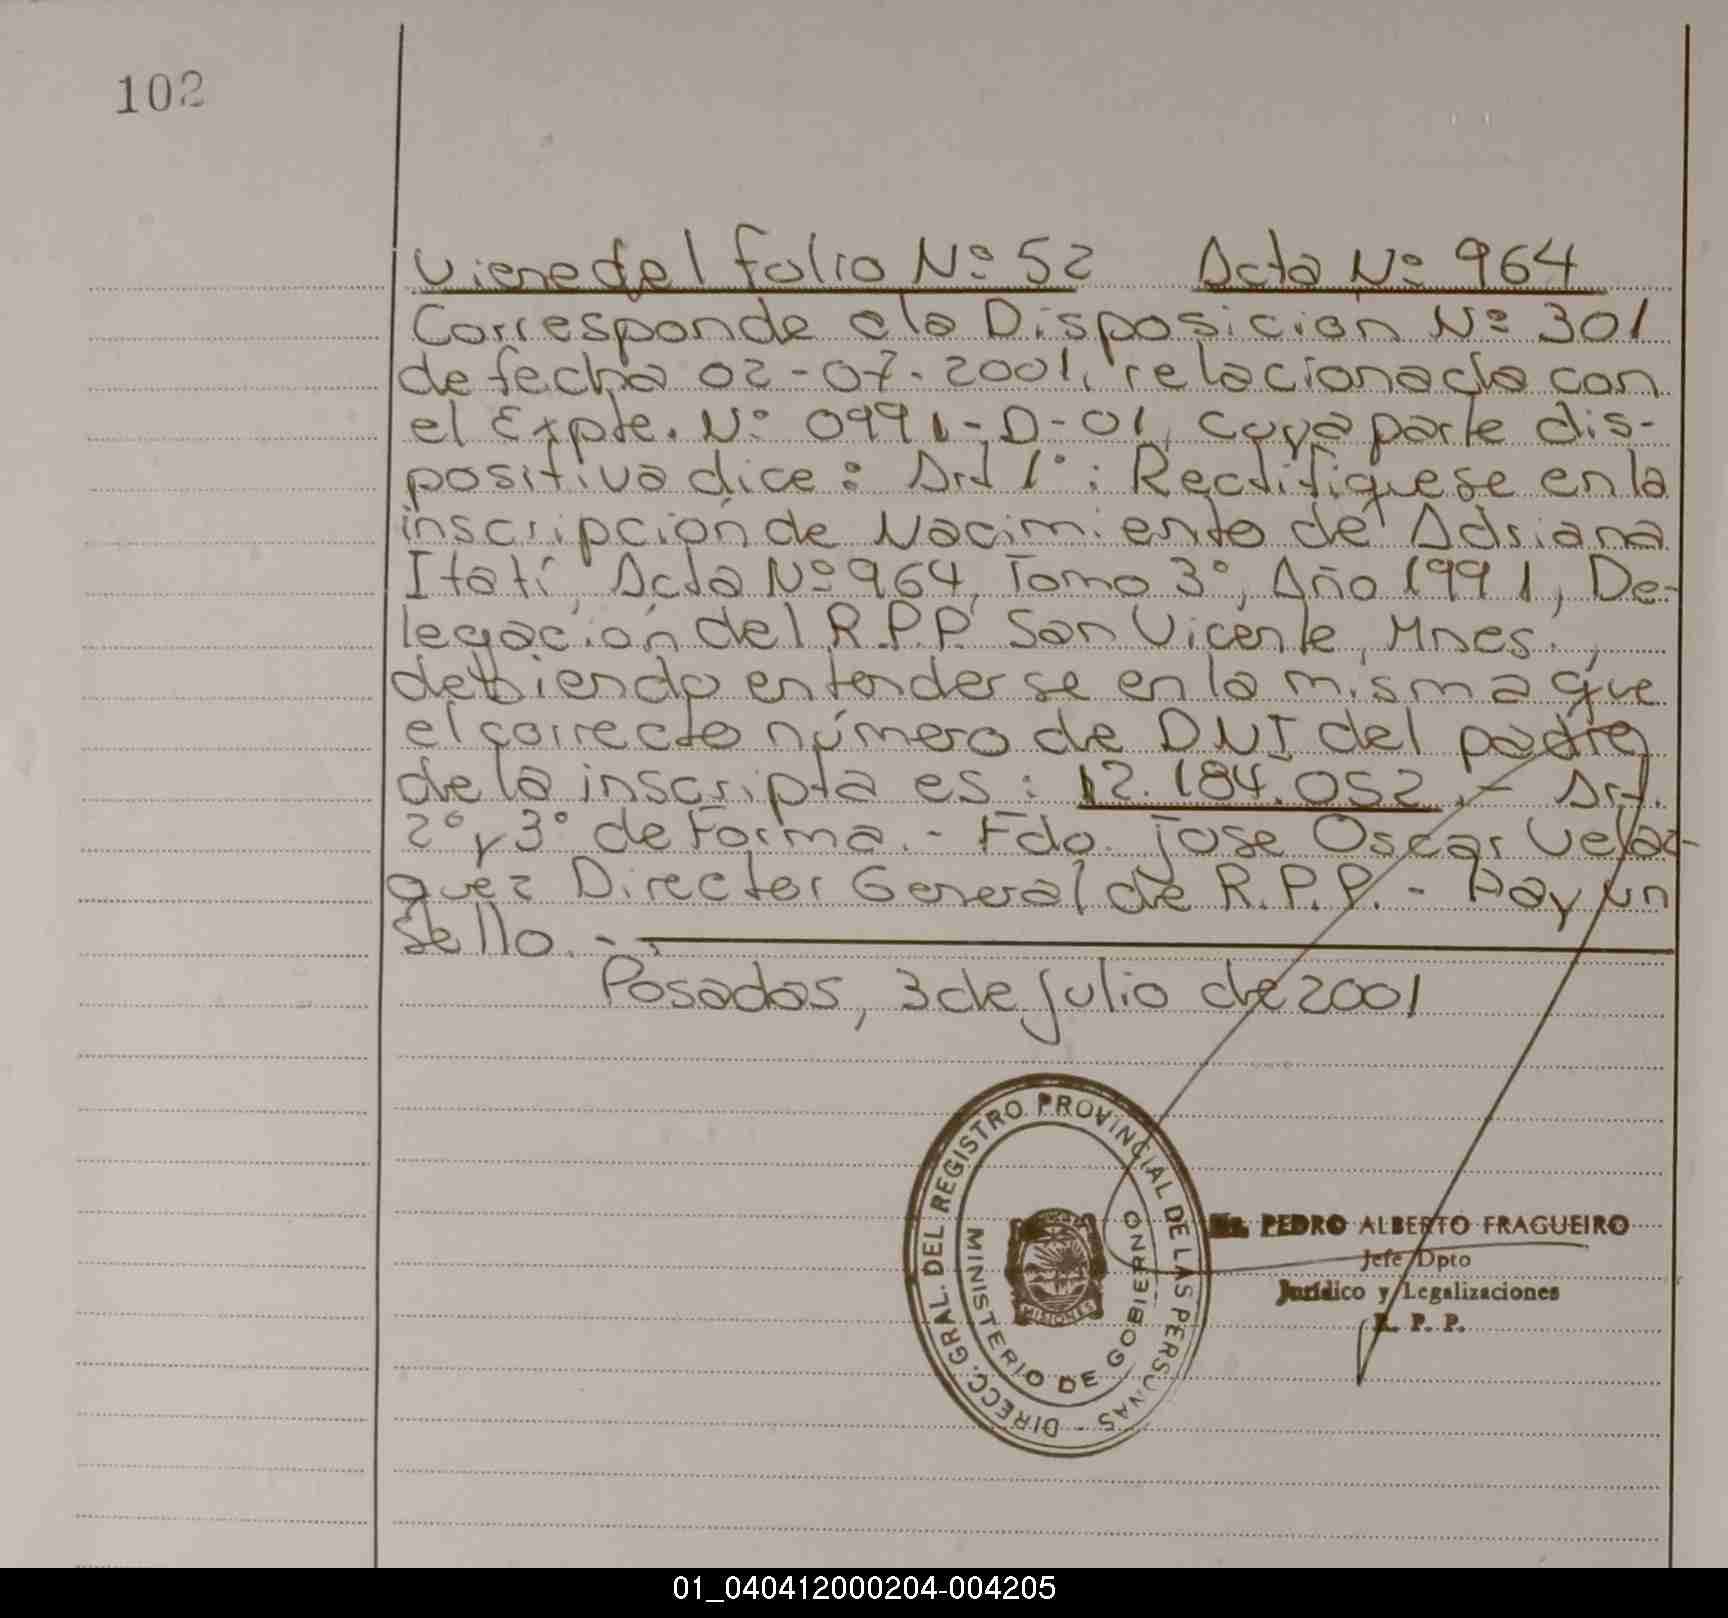 102
Viene del folio Nº 52 Acta Nº 964
Corresponde a la Disposición Nº 301
de fecha 02-07-2001, relacionada con
el Expte. Nº 0991-D-01, cuya parte dis-
positiva dice: Art 1º: Rectifiquese en la
inscripción de Nacimiento de Adriana
Itatí, Acta Nº 964, Tomo 3º, Año 1991, De-
legación del R.P.P. San Vicente, Mnes.,
debiendo entenderse en la misma que
el correcto número de DNI del padre
de la inscripta es: 12.184.052.- Art.
2º y 3º de Forma.- Fdo. Jose Oscar Velaz-
quez Director General de R.P.P.- Hay un
Sello.-
Posadas, 3 de Julio de 2001
DIRECC. GRAL. DEL REGISTRO PROVINCIAL DE LAS PERSONAS -
MINISTERIO DE GOBIERNO
MISIONES
PEDRO ALBERTO FRAGUEIRO
Jefe Dpto
Jurídico y Legalizaciones
R. P. P.
01_040412000204-004205